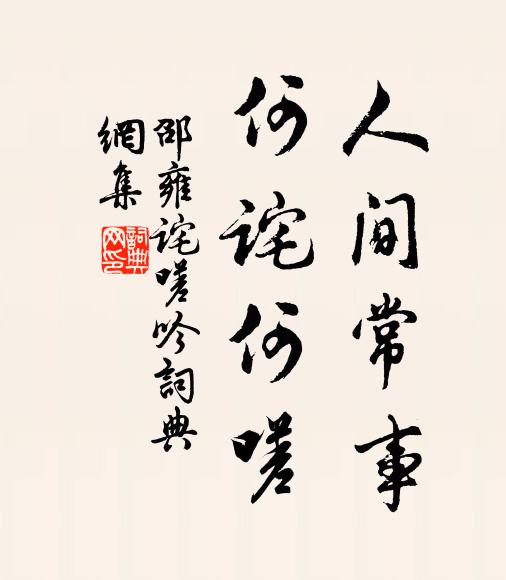 人间常事
何诧何嗟
邵雍诧嗟吟詞典
網集
詞典
网印